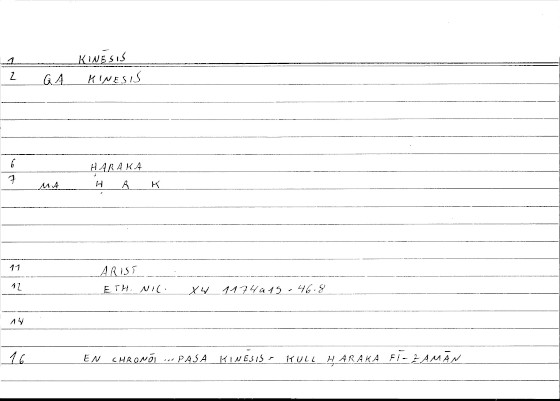 1 KINĒSIS
2 GA KINESIS
6 ḤARAKA
7 MA Ḥ R K
11 ARIST
12 ETH. NIC. XW 1174a19 - 46.8
14
16 EN CHRONŌI ... PASA KINĒSIS - KULL ḤARAKA FĪ-ZAMĀN